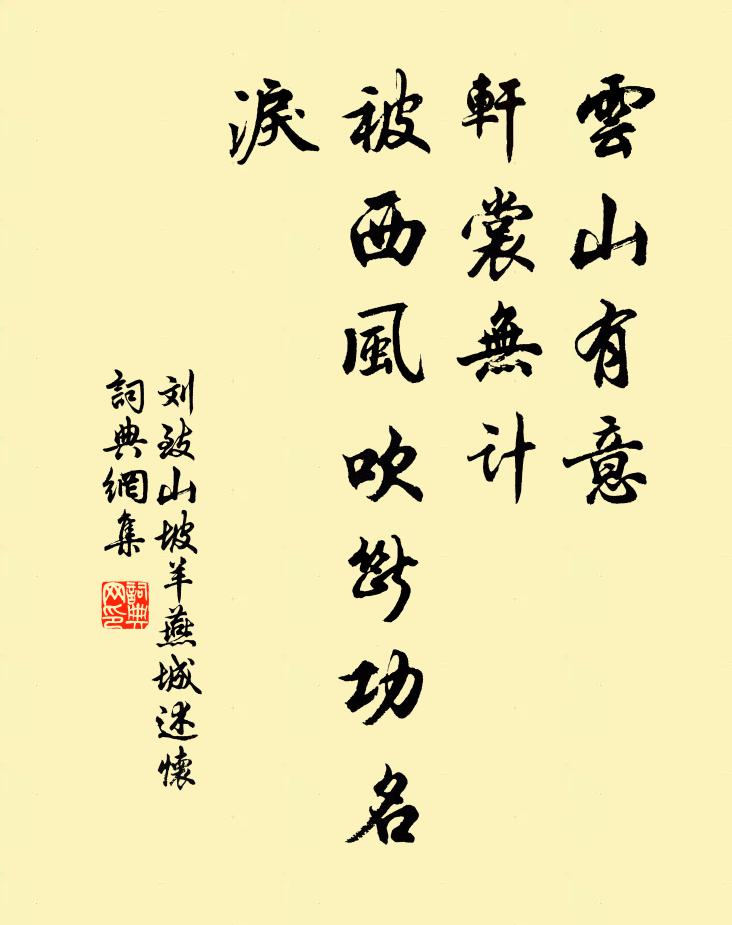 雲山有意
軒裳無計
被西風吹斷功名
淚
刘致山坡羊燕城述懷
詞典網集
詞典网印